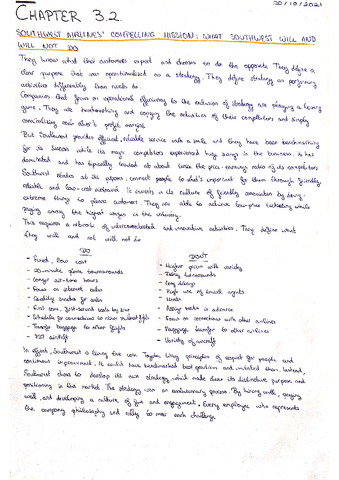 20/10/2021
CHAPTER 3.2
SOUTHWEST AIRLINES' COMPELLING MISSION: WHAT SOUTHWEST WILL AND
WILL NOT DO
They know what their customers expect and choose to do the opposite. They define a
clear purpose that was operationalized as a strategy. They define strategy as performing
activities differently from rivals do.
Companies that focus on operational efficiency to the exclusion of strategy are playing a losing
game. They are benchmarking and copying the activities of their competitors and simply
each other's profit margins.
But Southwest provides efficient, reliable service with a smile and they have been benchmarking
for its success while its major competitors experienced huge swings in the business. It has
dominated and has typically traded at about twice the price-earning ratio of its competitors
Southwest states at its purpose: connect people to what's important for them through friendly,
reliable and low-cost air travel. It invests in its culture of friendly association by doing
extreme things to please customers. They are able to achieve low-price ticketing while
paying among the highest wages in the industry.
This requires a network of interconnected and innovative activities. They define what
they will and not will not do
DO
- Fixed, low cost
- 20-minute plane turnarounds
- Longer air-time hours
- Focus on internet sales
- Quality snacks for sales
- First come, first-served seats by line
- Schedule for connections to other Southwest flights
- Transfer baggage to other flights
- 737 aircraft
DON'T
- Higher prices with variety
- Delay turnarounds
- Long delays
- High use of travel agents
- Meals
- Assign seats in advance
- Focus on connections with other airlines
- Baggage transfer to other airlines
- Variety of aircraft
In effect, Southwest is living the core Toyota Way principles of respect for people and
continuous improvement. It could have benchmarked best practices and imitated them. Instead,
Southwest chose to develop its own strategy, which made clear its distinctive purpose and
positioning in the market. The strategy was an evolutionary process. By hiring well, paying
well, and developing a culture of fun and engagement. Every employee who represents
the company philosophy and rally to meet each challenge.